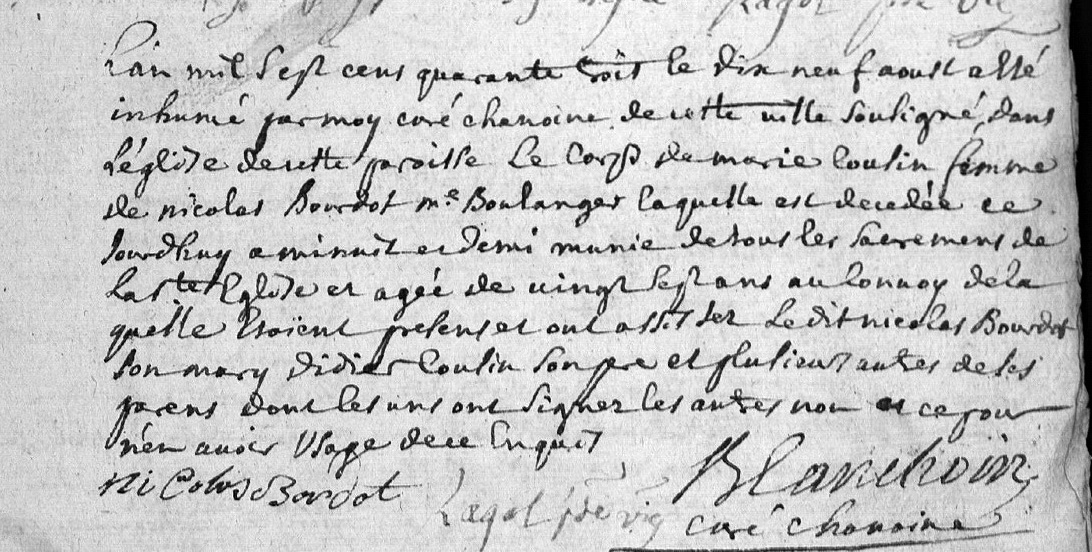 Ragot pbre vic
L'an mil sept cens quarante trois le dix neuf aoust a esté
inhumé par moy curé chanoine de cette ville soussigné, dans
L'église de cette paroisse Le Corps de marie Cousin femme
de nicolas Bourdot me Boulanger laquelle est decedée ce
Jourdhuy a minuit et demi munie de tous les sacremens de
la ste Eglise et agée de vingt sept ans au convoy de la
quelle Etoient presens et ont assister Ledit nicolas Bourdot
son mary didier Cousin son pre et plusieurs autres de ses
parens dont les uns ont signer les autres non et ce pour
n'en avoir Usage de ce Enquit
Nicolas Bordot
Blanchoin
Ragot pbre vic
curé chanoine